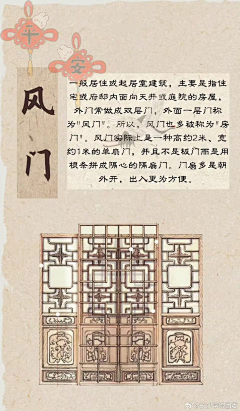 十
安
风门
一般居住或起居室建筑，主要是指住
宅或府邸内面向天井或庭院的房屋，
外门常做成双层门，外面一层门称
为“风门”。所以，风门也多被称为“房
门”，风门实际上是一种高约2米、宽
约1米的单扇门，并且不是板门而是用
棂条拼成隔心的隔扇门，门扇多是朝
外开，出入更为方便。